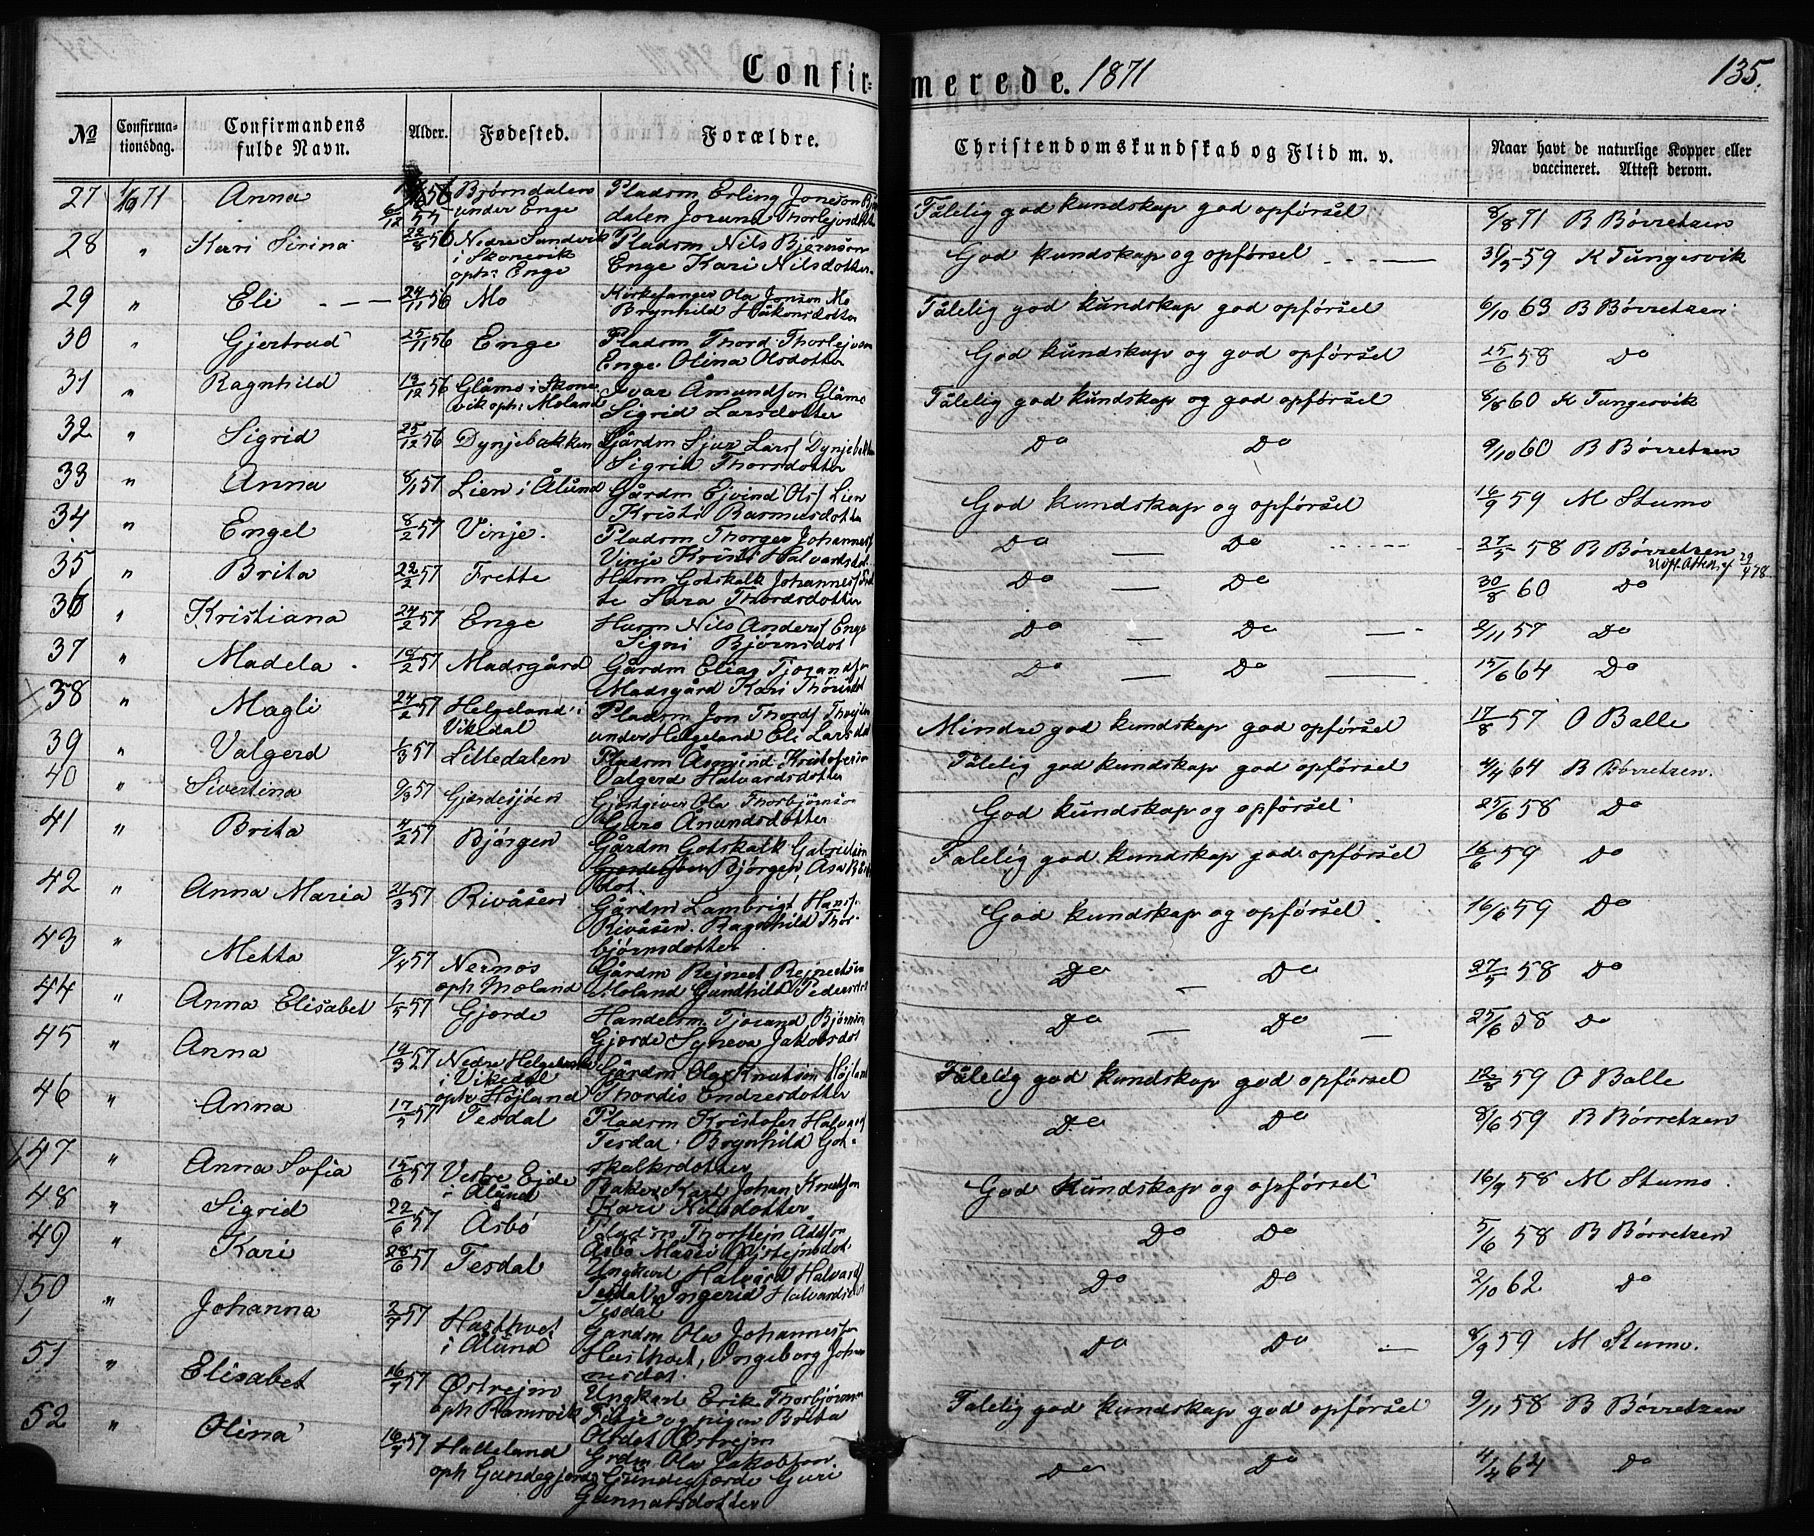 Confirmerede. 1871
135.
No Confirmationsdag. Confirmandens fulde Navn. Alder. Fødested. Forældre. Christendomskundskab og Flid m. v. Naar havt de naturlige Kopper eller vaccineret. Attest derom.
27 1/10 71 Anna 6/12 55 Brørndalen under Enge Pladsm Erling Joneson dalen Jorund Thorlejvsd Tålelig god kundskap god opførsel 8/8 71 B Børretzen
28 " Kari Sirina 22/8 56 Nedre Sundvik i Skonevik oph: Enge Pladsm Nils Bjørnson Enge Kari Nilsdotter God kundskap og opførsel 59 K Tungesvik
29 " Eli 24/11 56 Mo Kirkesanger Ola Jonson Mo Brynhild Håkonsdotter Tålelig god kundskap god opførsel 6/10 63 B Børretzen
30 " Gjertrud 25/11 56 Enge Pladsm Thord Thorlejvson Enge Olina Olsdotter God kundskap og god opførsel 25/6 58 Do
31 " Ragnhild 13/12 56 Glåmo i Skonevik oph: Moland Ivar Åmundson Glåmo Sigrid Larsdotter Tålelig god kundskap og god opførsel 8/8 60 K Tungesvik
32 " Sigrid 25/12 56 Dynjebakken Gårdm Sjur Lars Dynjebakken Sigrid Thorsdotter Do Do 9/10 60 B Børretzen
33 " Anna 8/1 57 Lien i Ålund Gårdm Ejvind Ols Lien Kristi Rasmusdotter God kundskap og opførsel 16/9 59 M Stumo
34 " Engel 8/2 57 Vinje Pladsm Thorger Johannes Vinje Kristi Halvardsdot Do — Do 27/5 58 B Børretzen
35 " Brita 22/2 57 Frette Husm Gotskalk Johannes Frette Sara Thordsdotter Do — Do 30/8 60 Do
Udst. Attest 29/4 78
36 " Kristiana 24/2 57 Enge Husm Nils Anders Enge Signi Bjørnsdot Do — Do 2/11 57 Do
37 " Madela 18/2 57 Madsgård Gårdm Elias Tjorandson Madsgård Kari Do — Do 15/6 64 Do
38 " Magli 24/2 57 Helgeland i Vikedal Pladsm Jon Thords under Helgeland Eli Larsdot Mindre god kundskap god opførsel 17/8 57 O Balle
39 " Valgerd 1/3 57 Littedalen Pladsm Åsmund Kristoferson Valgerd Halvardsdotter Tålelig god kundskap god opførsel 4/4 64 B Børretzen.
40 " Sivertina 9/3 57 Gjerdesjøen Gjestgiver Ola Thorbjørnson Guro Anundsdotter God kundskap og opførsel 25/6 58 Do
41 " Brita 4/2 57 Bjørgen Gårdm Gotskalk Gabrielson Bjørgen, Åsa dot. Tålelig god kundskap god opførsel 16/6 59 Do
42 " Anna Maria 21/3 57 Rivåsen Gårdm Lambrigt Hans Rivåsen. Ragnhild Thorbjørnsdotter God kundskap og opførsel 16/6 59 Do
43 " Metta 9/4 57 Nernos oph Moland Gårdm Rejnert Rejnertson Moland Gundhild Pedersdot Do — Do 27/5 58 Do
44 " Anna Elisabet 1/5 57 Gjerde Handelsm. Tjorand Bjørnson Gjerde Syneva Jakobsdot Do — Do — 25/6 58 Do
45 " Anna 19/3 57 Nedre Helgeland i Vikedal oph Højland Gårdm Ola Knutson Højland Thordis Endresdotter Tålelig god kundskap god opførsel 12/8 59 O Balle
46 " Anna 17/5 57 Tesdal Pladsm Kristofer Halvards Tesdal. Brynhild Gotskalksdotter Do Do 8/6 59 B Børretzen
47 " Anna Sofia 15/6 57 Vestre Ejde i Ålund Baker Karl Johan Knutson Kari Nilsdotter God kundskap og opførsel 16/9 58 M Stumo.
48 " Sigrid 22/6 57 Åsbø Pladsm Thorstejn Åsbø Do Do 5/6 58 B Børretzen
49 " Kari 28/6 57 Tesdal Ungkarl Halvård Halvards Tesdal Ingerid Halvardsdot Tesdal Do Do 2/10 62 Do
50 " Johanna 2/7 57 Hasthvet i Ålund Gårdm Ola Johanneson Hasthvet, Ingeborg Johannesdot. Do Do — 8/9 59 M Stumo.
51 " Elisabet 16/7 57 Østrejm oph Ramsvik Ungkarl Erik Thorbjørnson og pigen Brita Olsdot Østrejm Tålelig god kundskap god opførsel 9/11 58 B Børretzen
52 " Olina 16/7 57 Hatteland oph Gundegjerde Grdm Ola Jakobson Gundegjerde Guri Gunnarsdotter Do Do 4/4 62 Do